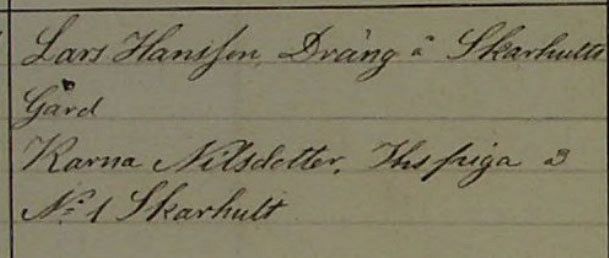 Lars Hansson, Dräng å Skarhults
Gård
Karna Nilsdotter, Ths piga å
No 1 Skarhult